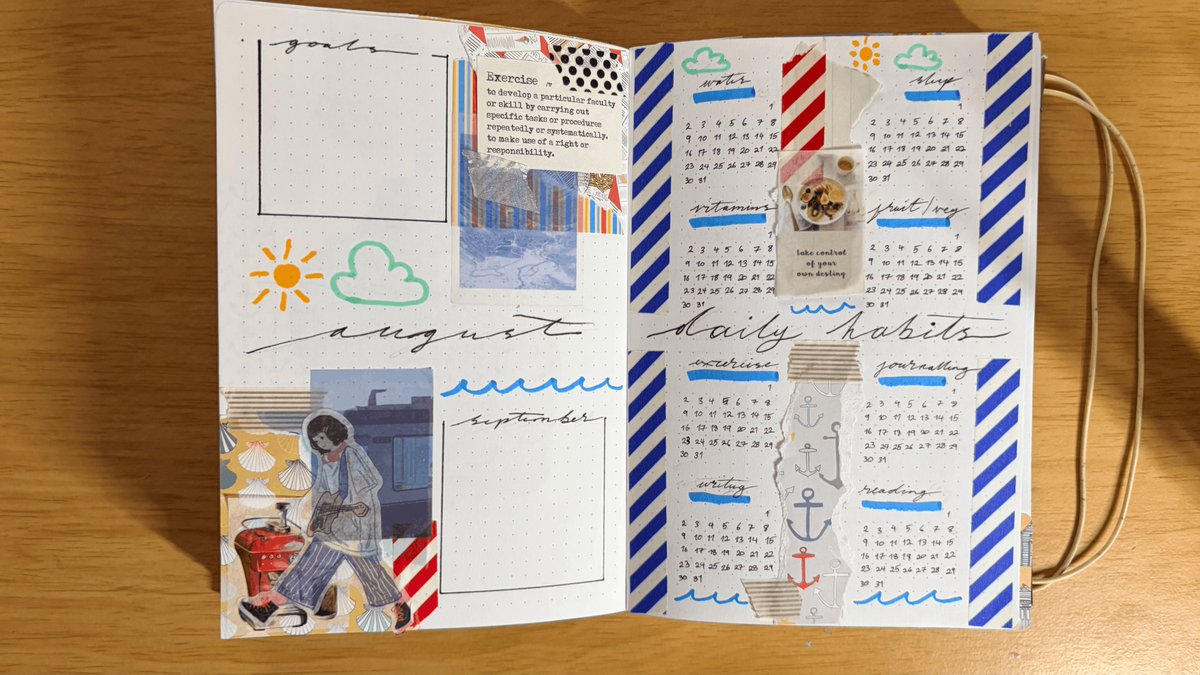 goals
Exercise
to develop a particular faculty
or skill by carrying out
specific tasks or procedures
repeatedly or systematically.
to make use of a right or
responsibility.
august
september
water
1
2 3 4 5 6 7 8
9 10 11 12 13 14 15
16 17 18 19 20 21 22
23 24 25 26 27 28 29
30 31
sleep
1
2 3 4 5 6 7 8
9 10 11 12 13 14 15
16 17 18 19 20 21 22
23 24 25 26 27 28 29
30 31
vitamins
1
2 3 4 5 6 7 8
9 10 11 12 13 14 15
16 17 18 19 20 21 22
23 24 25 26 27 28 29
30 31
take control
of your
own destiny
fruit/veg
1
2 3 4 5 6 7 8
9 10 11 12 13 14 15
16 17 18 19 20 21 22
23 24 25 26 27 28 29
30 31
daily habits
exercise
1
2 3 4 5 6 7 8
9 10 11 12 13 14 15
16 17 18 19 20 21 22
23 24 25 26 27 28 29
30 31
journalling
1
2 3 4 5 6 7 8
9 10 11 12 13 14 15
16 17 18 19 20 21 22
23 24 25 26 27 28 29
30 31
writing
1
2 3 4 5 6 7 8
9 10 11 12 13 14 15
16 17 18 19 20 21 22
23 24 25 26 27 28 29
30 31
reading
1
2 3 4 5 6 7 8
9 10 11 12 13 14 15
16 17 18 19 20 21 22
23 24 25 26 27 28 29
30 31